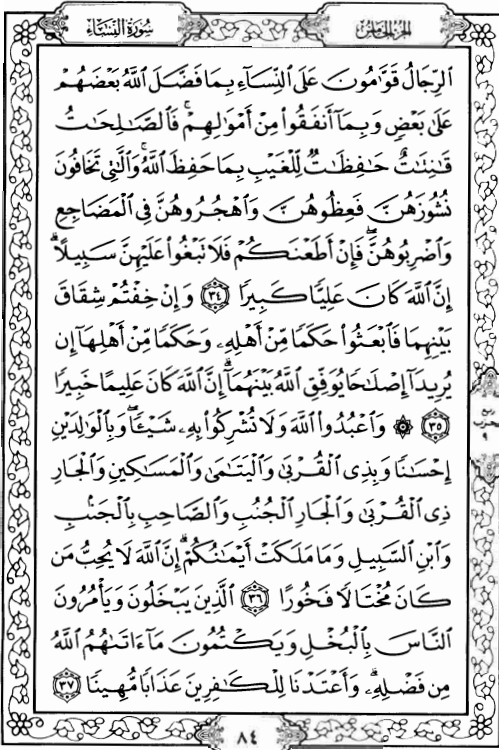 سُورَةُ النِّسَاءِ الجُزْءُ الخَامِسُ
ٱلرِّجَالُ قَوَّٰمُونَ عَلَى ٱلنِّسَآءِ بِمَا فَضَّلَ ٱللَّهُ بَعْضَهُمْ
عَلَىٰ بَعْضٍ وَبِمَآ أَنفَقُوا۟ مِنْ أَمْوَٰلِهِمْ ۚ فَٱلصَّٰلِحَٰتُ
قَٰنِتَٰتٌ حَٰفِظَٰتٌ لِّلْغَيْبِ بِمَا حَفِظَ ٱللَّهُ ۚ وَٱلَّٰتِى تَخَافُونَ
نُشُوزَهُنَّ فَعِظُوهُنَّ وَٱهْجُرُوهُنَّ فِى ٱلْمَضَاجِعِ
وَٱضْرِبُوهُنَّ ۖ فَإِنْ أَطَعْنَكُمْ فَلَا تَبْغُوا۟ عَلَيْهِنَّ سَبِيلًا ۗ
إِنَّ ٱللَّهَ كَانَ عَلِيًّا كَبِيرًا ٣٤ وَإِنْ خِفْتُمْ شِقَاقَ
بَيْنِهِمَا فَٱبْعَثُوا۟ حَكَمًا مِّنْ أَهْلِهِۦ وَحَكَمًا مِّنْ أَهْلِهَآ إِن
يُرِيدَآ إِصْلَٰحًا يُوَفِّقِ ٱللَّهُ بَيْنَهُمَآ ۗ إِنَّ ٱللَّهَ كَانَ عَلِيمًا خَبِيرًا
٣٥ ۞ وَٱعْبُدُوا۟ ٱللَّهَ وَلَا تُشْرِكُوا۟ بِهِۦ شَيْـًٔا ۖ وَبِٱلْوَٰلِدَيْنِ
ربع
حزب
٩
إِحْسَٰنًا وَبِذِى ٱلْقُرْبَىٰ وَٱلْيَتَٰمَىٰ وَٱلْمَسَٰكِينِ وَٱلْجَارِ
ذِى ٱلْقُرْبَىٰ وَٱلْجَارِ ٱلْجُنُبِ وَٱلصَّاحِبِ بِٱلْجَنۢبِ
وَٱبْنِ ٱلسَّبِيلِ وَمَا مَلَكَتْ أَيْمَٰنُكُمْ ۗ إِنَّ ٱللَّهَ لَا يُحِبُّ مَن
كَانَ مُخْتَالًا فَخُورًا ٣٦ ٱلَّذِينَ يَبْخَلُونَ وَيَأْمُرُونَ
ٱلنَّاسَ بِٱلْبُخْلِ وَيَكْتُمُونَ مَآ ءَاتَىٰهُمُ ٱللَّهُ
مِن فَضْلِهِۦ ۗ وَأَعْتَدْنَا لِلْكَٰفِرِينَ عَذَابًا مُّهِينًا ٣٧
٨٤